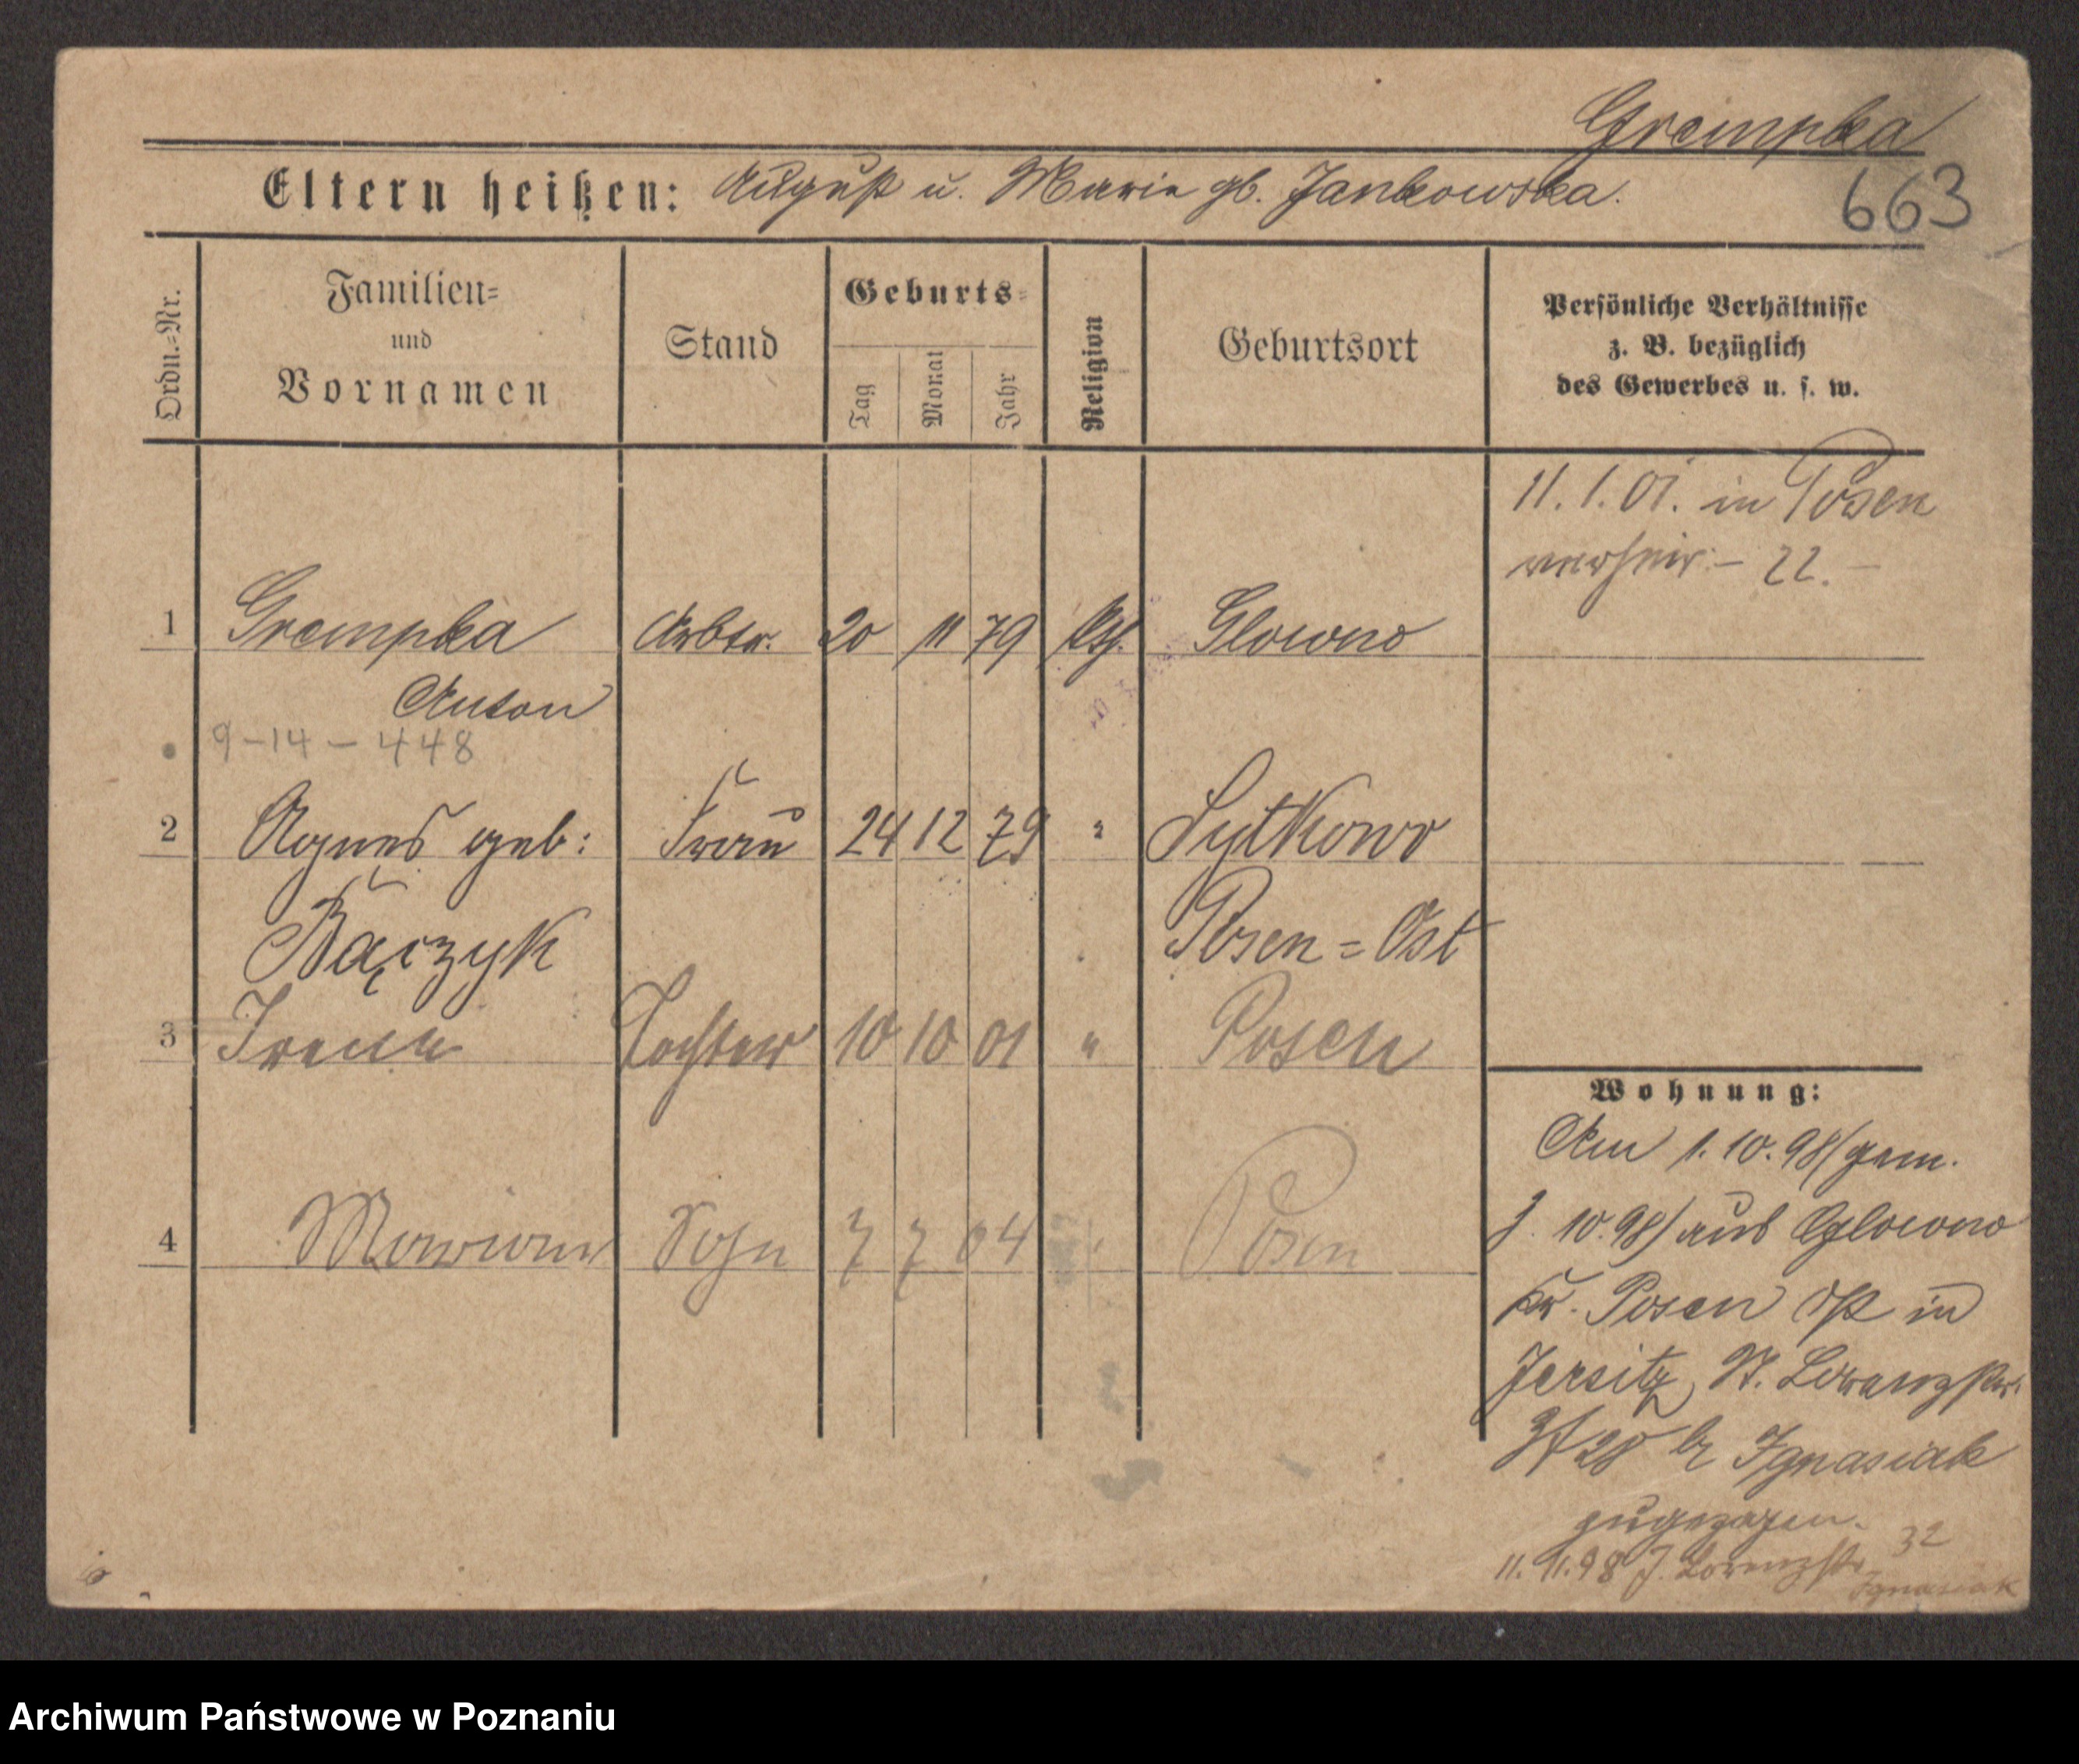 Grempka
Eltern heißen: August u. Marie gb. Jankowska.
663
Ordn.-Nr.
Familien-
und
Vornamen
Stand
Geburts-
Tag
Monat
Jahr
Religion
Geburtsort
Persönliche Verhältnisse
z. B. bezüglich
des Gewerbes u. s. w.
11. 1. 01. in Posen
verheir: – 22. –
1 Grempka Arbtr. 20 11 79 Kth. Glowno
Anton
9-14-448
2 Agnes geb: Frau 24 12 79 " Sytkowo
Bączyk Posen=Ost
3 Irena Tochter 10 10 01 " Posen
4 Marian Sohn 7 7 04 Posen
Wohnung:
Am 1. 10. 98/gem.
10. 98/ aus Glowno
Kr. Posen Ost in
Jersitz, St. Loranzstr.
28 b Ignasiak
zugezogen.
11. 11. 98 J. Lorenzstr 32
Ignasiak
Archiwum Państwowe w Poznaniu